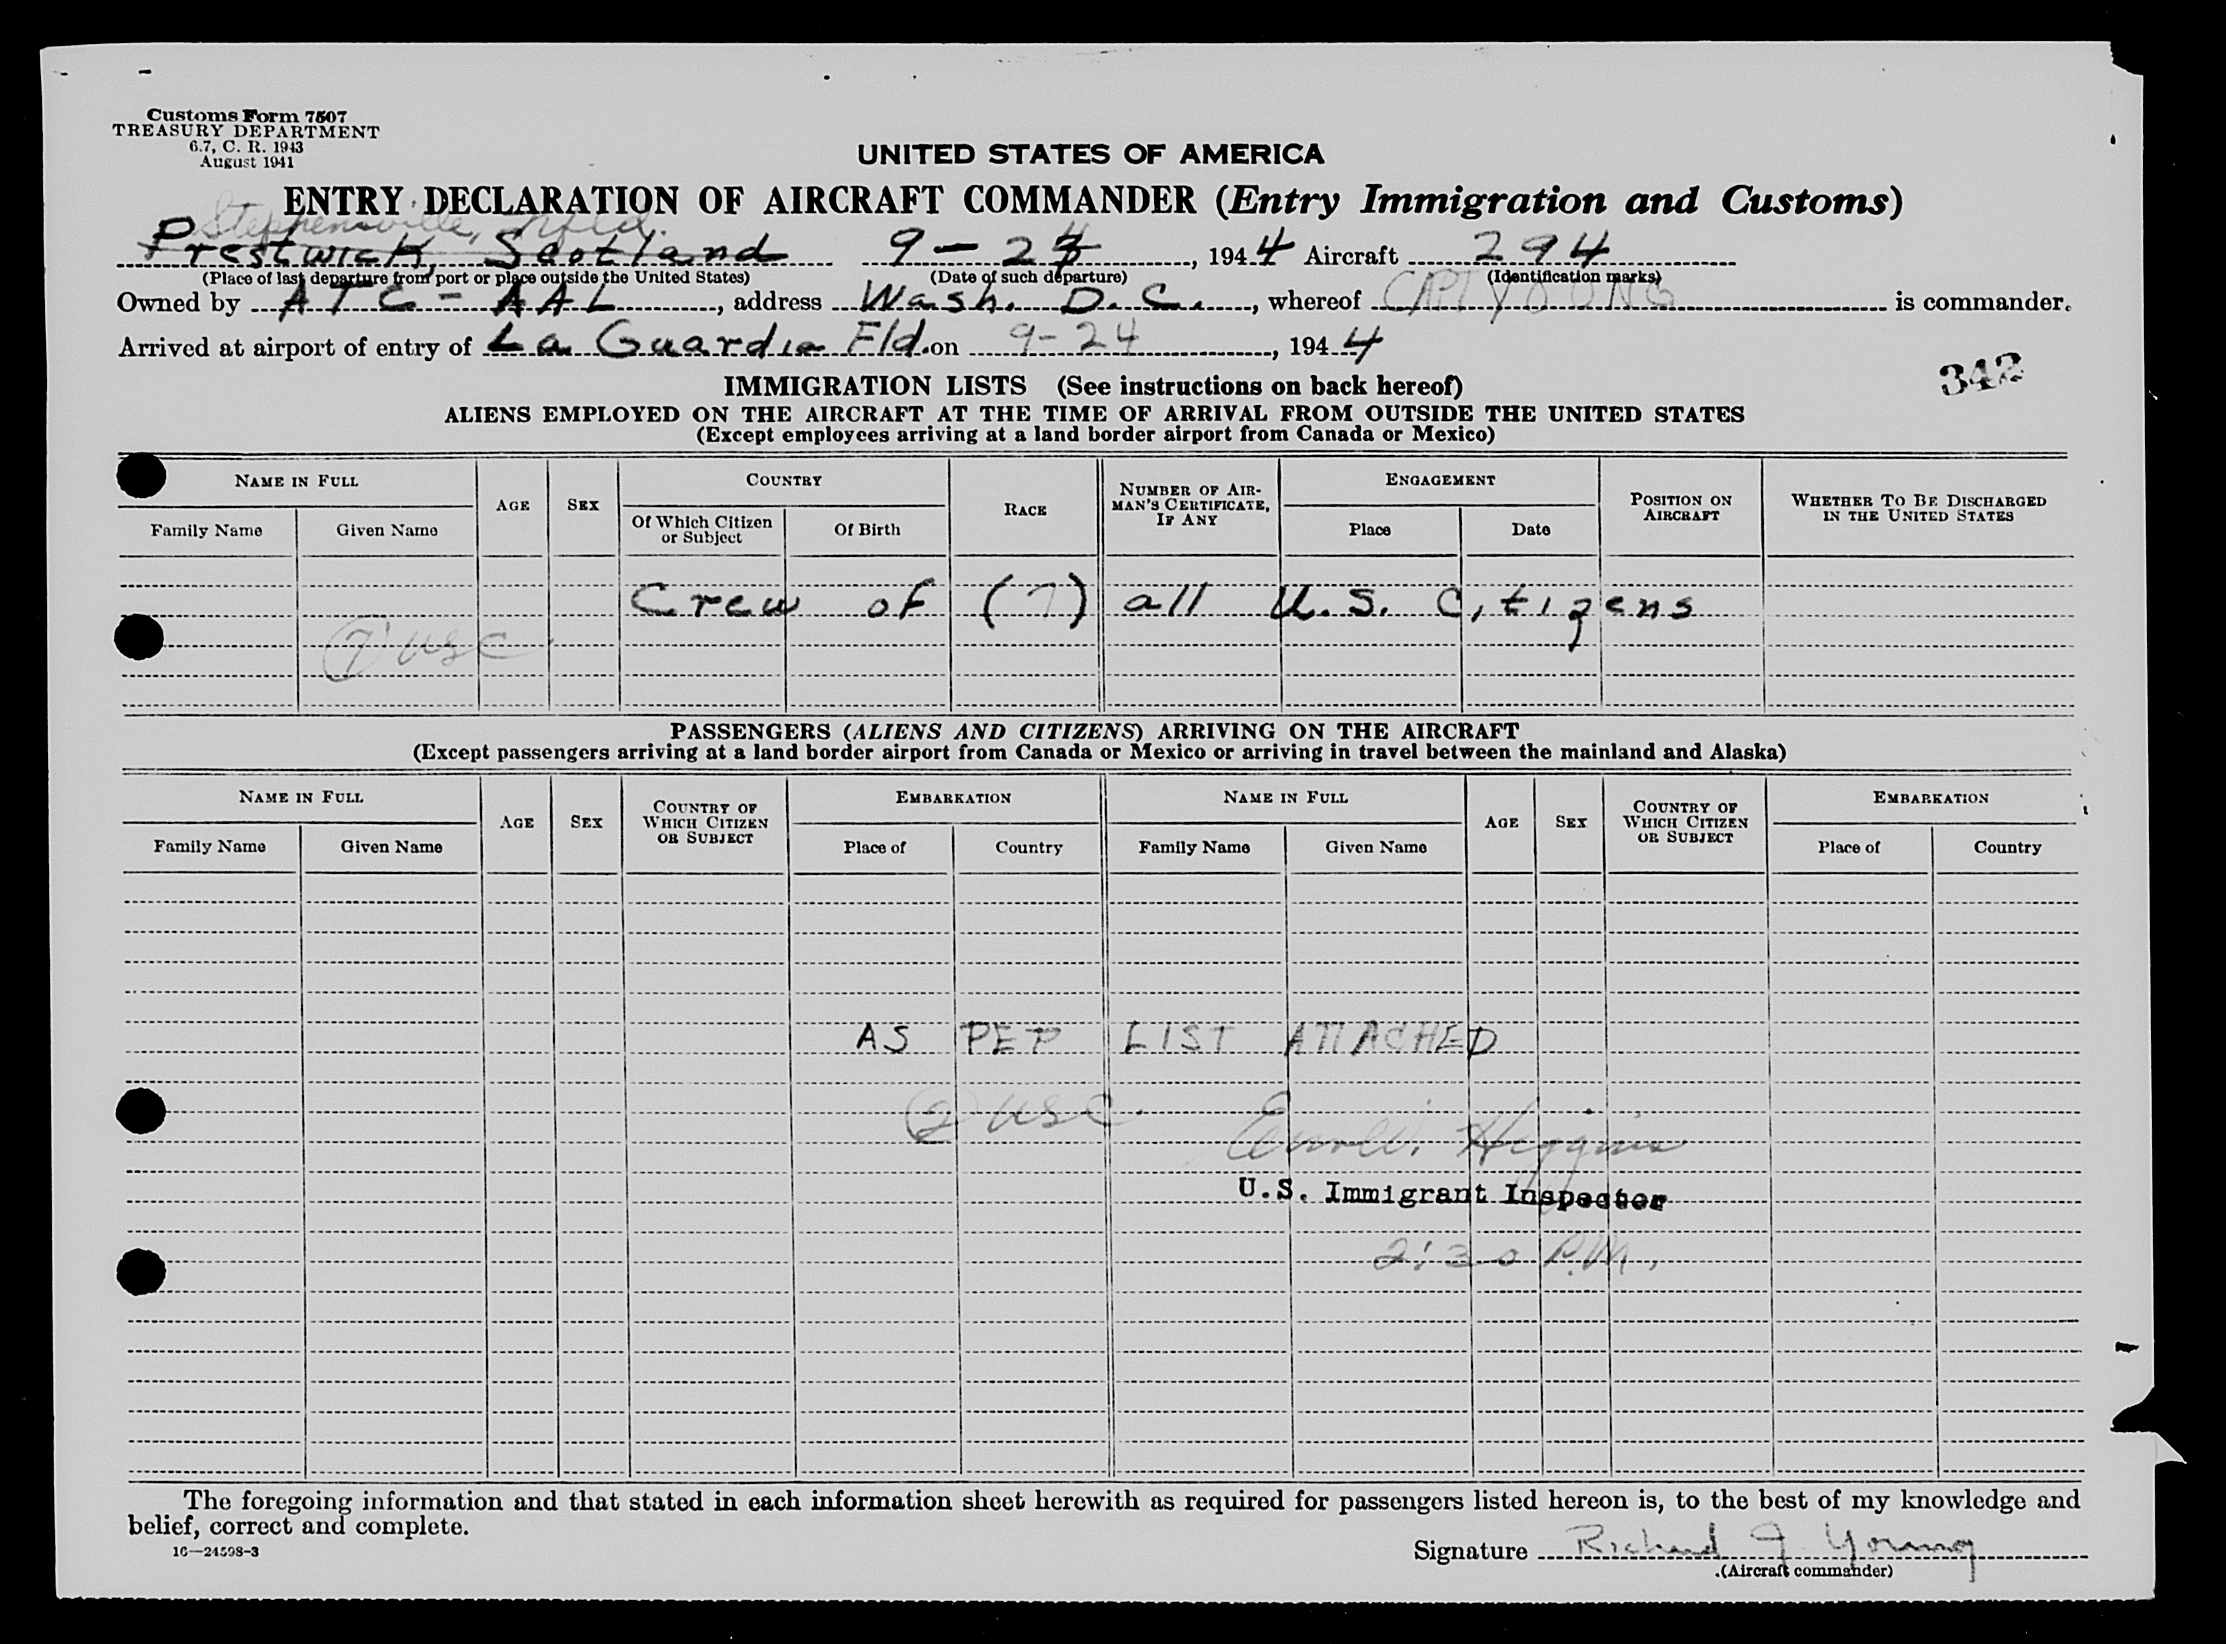 Customs Form 7507
TREASURY DEPARTMENT
6.7, C. R. 1943
August 1941
UNITED STATES OF AMERICA
ENTRY DECLARATION OF AIRCRAFT COMMANDER (Entry Immigration and Customs)
Stephenville, Nfld.
Prestwick, Scotland 9-24, 1944 Aircraft 294
(Place of last departure from port or place outside the United States) (Date of such departure) (Identification marks)
Owned by ATC-AAL, address Wash. D.C., whereof CAPT YOUNG is commander.
Arrived at airport of entry of La Guardia Fld. on 9-24, 1944
342
IMMIGRATION LISTS (See instructions on back hereof)
ALIENS EMPLOYED ON THE AIRCRAFT AT THE TIME OF ARRIVAL FROM OUTSIDE THE UNITED STATES
(Except employees arriving at a land border airport from Canada or Mexico)
NAME IN FULL AGE SEX COUNTRY RACE NUMBER OF AIRMAN'S CERTIFICATE, IF ANY ENGAGEMENT POSITION ON AIRCRAFT WHETHER TO BE DISCHARGED IN THE UNITED STATES
Family Name Given Name Of Which Citizen or Subject Of Birth Place Date
Crew of (7) all U.S. Citizens
(7) USC
PASSENGERS (ALIENS AND CITIZENS) ARRIVING ON THE AIRCRAFT
(Except passengers arriving at a land border airport from Canada or Mexico or arriving in travel between the mainland and Alaska)
NAME IN FULL AGE SEX COUNTRY OF WHICH CITIZEN OR SUBJECT EMBARKATION NAME IN FULL AGE SEX COUNTRY OF WHICH CITIZEN OR SUBJECT EMBARKATION
Family Name Given Name Place of Country Family Name Given Name Place of Country
AS PER LIST ATTACHED
(2) USC.
Higgins
U.S. Immigrant Inspector
2:30 P.M.
The foregoing information and that stated in each information sheet herewith as required for passengers listed hereon is, to the best of my knowledge and
belief, correct and complete.
16—24598-3
Signature Richard J Young
(Aircraft commander)